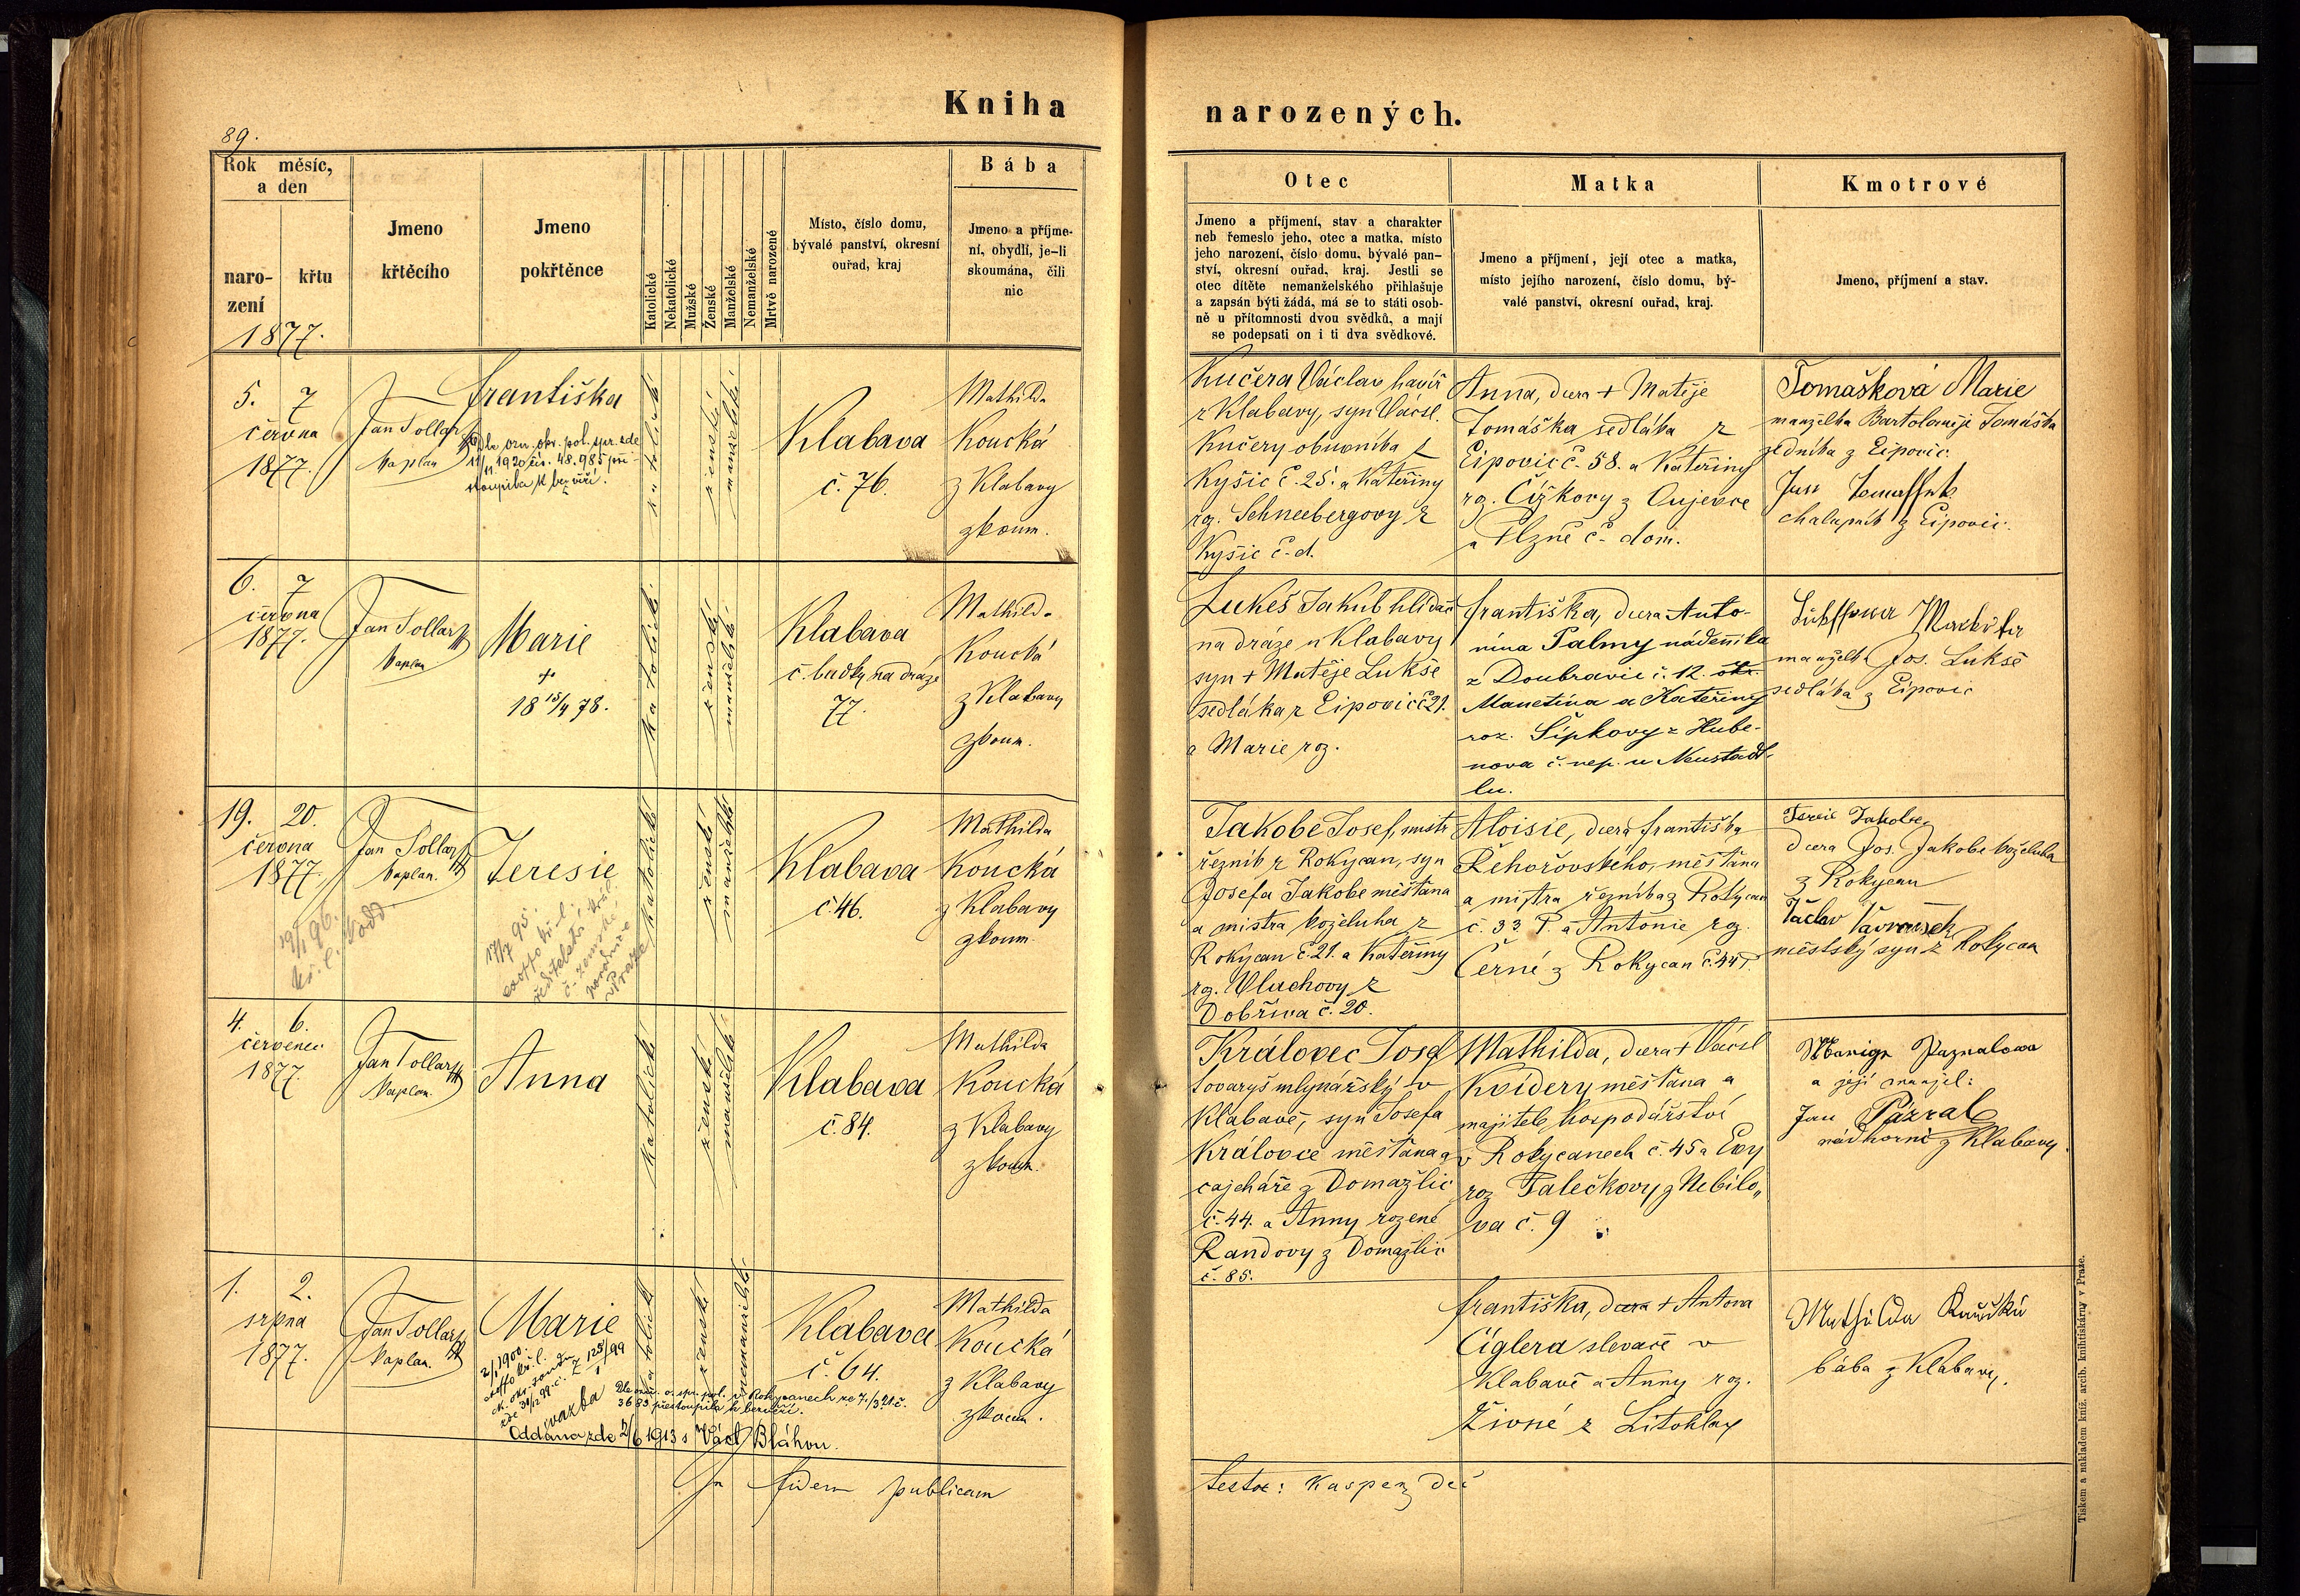 Kniha
narozených.
89.
Rok měsíc,
a den
naro-
zení
křtu
1877.
Jmeno
křtěcího
Jmeno
pokřtěnce
Katolické
Nekatolické
Mužské
Ženské
Manželské
Nemanželské
Mrtvě narozené
Místo, číslo domu,
bývalé panství, okresní
ouřad, kraj
Bába
Jmeno a příjme-
ní, obydlí, je-li
skoumána, čili
nic
Otec
Jmeno a příjmení, stav a charakter
neb řemeslo jeho, otec a matka, místo
jeho narození, číslo domu, bývalé pan-
ství, okresní ouřad, kraj. Jestli se
otec dítěte nemanželského přihlašuje
a zapsán býti žádá, má se to státi osob-
ně u přítomnosti dvou svědků, a mají
se podepsati on i ti dva svědkové.
Matka
Jmeno a příjmení, její otec a matka,
místo jejího narození, číslo domu, bý-
valé panství, okresní ouřad, kraj.
Kmotrové
Jmeno, příjmení a stav.
5. 7
června
1877.
Jan Tollar
Kaplan
Františka
Dle ozn. okr. pol. spr. zde
11/11 1920 čís. 48.985 při-
stoupila k bezvěří.
katolické
ženské
manželské
Klabava
č. 76.
Mathilda
Koucká
z Klabavy
zkoum.
Kučera Václav havíř
z Klabavy, syn Václ.
Kučery obuvníka z
Kyšic č. 25. a Kateřiny
roz. Schneebergovy z
Kyšic č. d.
Anna, dcera + Matěje
Tomáška sedláka z
Eipovic č. 58. a Kateřiny
roz. Čížkovy z Oujezce
a Plzně č. dom.
Tomášková Marie
manželka Bartoloměje Tomáška
z Eipovic.
Jan
chalupník z Eipovic.
6. 7
června
1877.
Jan Tollar
Kaplan
Marie
+
18 15/4 78.
katolické
ženské
manželské
Klabava
č. budky na dráze
77.
Mathilda
Koucká
z Klabavy
zkoum.
Lukeš Jakub hlídač
na dráze u Klabavy
syn + Matěje Lukše
sedláka z Eipovic č 21.
a Marie roz.
Františka, dcera Anto-
nína Palmy nádenníka
z Doubravice č. 12.
Manetína a Kateřiny
roz. Šípkovy z Hube-
nova č. nep. u Neustadt-
lu.
manželka Jos. Lukše
sedláka z Eipovic
19. 20.
června
1877.
Jan Tollar
Kaplan.
Teresie
19/1 96.
kř. l.
17/7 95.
kř. l.
č. zemské
porodnice
v Praze
katolické
ženské
manželské
Klabava
č. 46.
Mathilda
Koucká
z Klabavy
zkoum.
Jakobe Josef, mistr
řezník z Rokycan, syn
Josefa Jakobe měšťana
a mistra koželuha z
Rokycan č. 21. a Kateřiny
roz. Vlachovy z
Dobříva č. 20.
Aloisie, dcera Františka
Řehořovského, měšťana
a mistra řezníka z Rokycan
č. 33 P. a Antonie roz.
Černé z Rokycan č. 44 P.
dcera Jos. Jakobe koželuha
z Rokycan
Václav
městský syn z Rokycan
4. 6.
červenec
1877.
Jan Tollar
Kaplan.
Anna
katolické
ženské
manželské
Klabava
č. 84.
Mathilda
Koucká
z Klabavy
zkoum.
Královec Josef
tovaryš mlynářský v
Klabavě, syn Josefa
Královce měšťana a
cajcháře z Domažlic
č. 44. a Anny rozené
Randovy z Domažlic
č. 85.
Mathilda, dcera + Václ
Kvídery měšťana a
majitele hospodářství
v Rokycanech č. 45 a Evy
roz Palečkovy z Nebílo„
va č. 9
a její manžel:
Jan Pázral
nádhorní z Klabavy.
1. 2.
srpna
1877.
Jan Tollar
Kaplan.
Marie
2/1 1900.
vazba
Dle ozn. o. spr. pol. v Rokycanech ze 7./3 21. č.
3683 přestoupila k bezvěří.
Oddána zde 2/6 1913 s Václ Bláhou.
katolické
ženské
nemanželské
Klabava
č. 64.
Mathilda
Koucká
z Klabavy
zkoum.
Františka, dcera + Antona
Cíglera slevače v
Klabavě a Anny roz.
Živné z Litohlav
Mathilda
bába z Klabavy.
In fidem publicam
testor: Kasper děk
Tiskem a nákladem kníž. arcib. knihtiskárny v Praze.